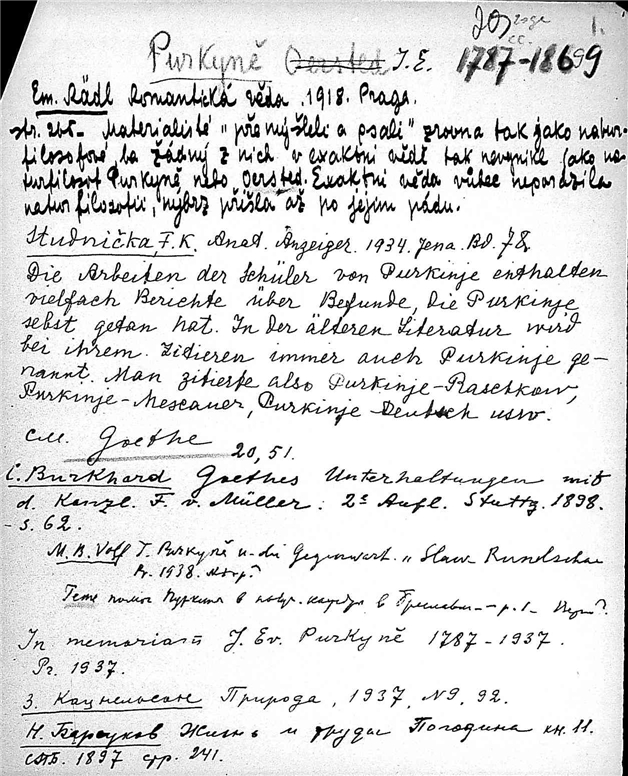 1.
Purkyně Oersted J. E. 1787-1869
Em. Rádl Romantická věda. 1918. Praga.
str. 205- Materialisté "přemýšleli a psali" zrovna tak jako natur-
filosofové, ba žádný z nich v exaktní vědě tak nevynikl jako na-
turfilosof Purkyně nebo Oersted. Exaktní věda vůbec neporazila
naturfilosofii, nýbrž přišla až po jejím pádu.
Studnička, F. K. Anat. Anzeiger. 1934. Jena. Bd. 78.
Die Arbeiten der Schüler von Purkinje enthalten
vielfach Berichte über Befunde, die Purkinje
selbst getan hat. In der älteren Literatur wird
bei ihrem Zitieren immer auch Purkinje ge-
nannt. Man zitierte also Purkinje-Raschkow,
Purkinje-Mescauer, Purkinje Deutsch usw.
см. Goethe
20, 51.
C. Burkhard Goethes Unterhaltungen mit
d. Kanzl. F. v. Müller. 2e Aufl. Stuttg. 1898.
- S. 62.
M. B. Volf J. Purkyně u. die Gegenwart. "Slaw. Rundschau
Pr. 1938.
Гете помог Пуркине в в Бреславл
In memoriam J. Ev. Purkyně 1787-1937.
Pr. 1937.
З. Кацнельсон Природа, 1937, N9, 92.
Н. Барсуков Жизнь и труды Погодина кн. 11.
СПБ. 1897 стр. 241.